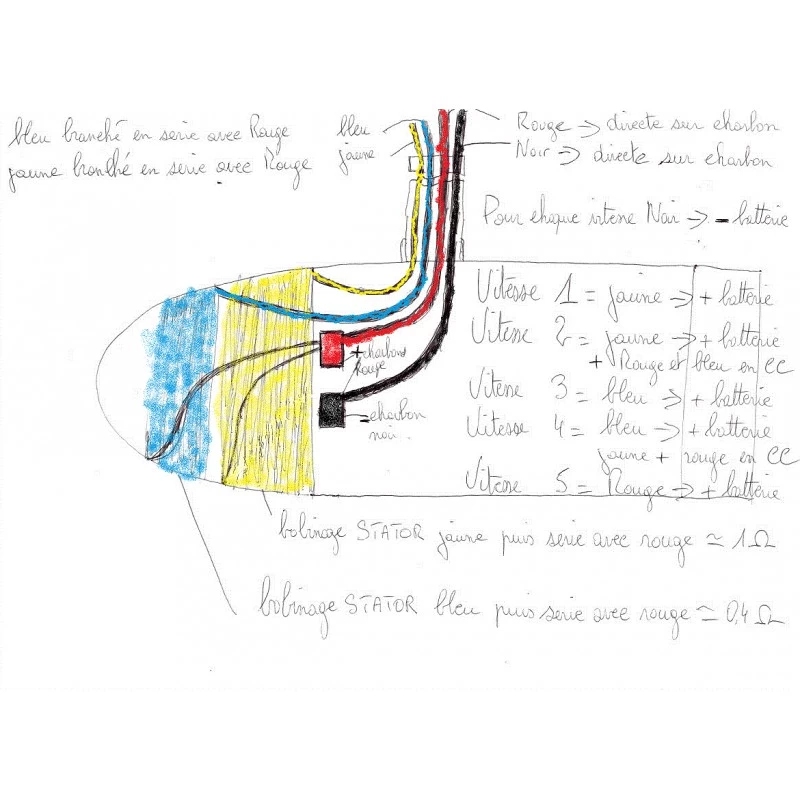 bleu branché en serie avec Rouge
jaune branché en serie avec Rouge
bleu
jaune
Rouge -> directe sur charbon
Noir -> directe sur charbon
Pour chaque vitesse Noir -> - batterie
+ charbon
Rouge
- charbon
noir.
Vitesse 1 = jaune -> + batterie
Vitesse 2 = jaune -> + batterie
+ Rouge et bleu en CC
Vitesse 3 = bleu -> + batterie
Vitesse 4 = bleu -> + batterie
jaune + rouge en CC
Vitesse 5 = Rouge -> + batterie
bobinage STATOR jaune puis serie avec rouge ≃ 1 Ω
bobinage STATOR bleu puis serie avec rouge ≃ 0,4 Ω